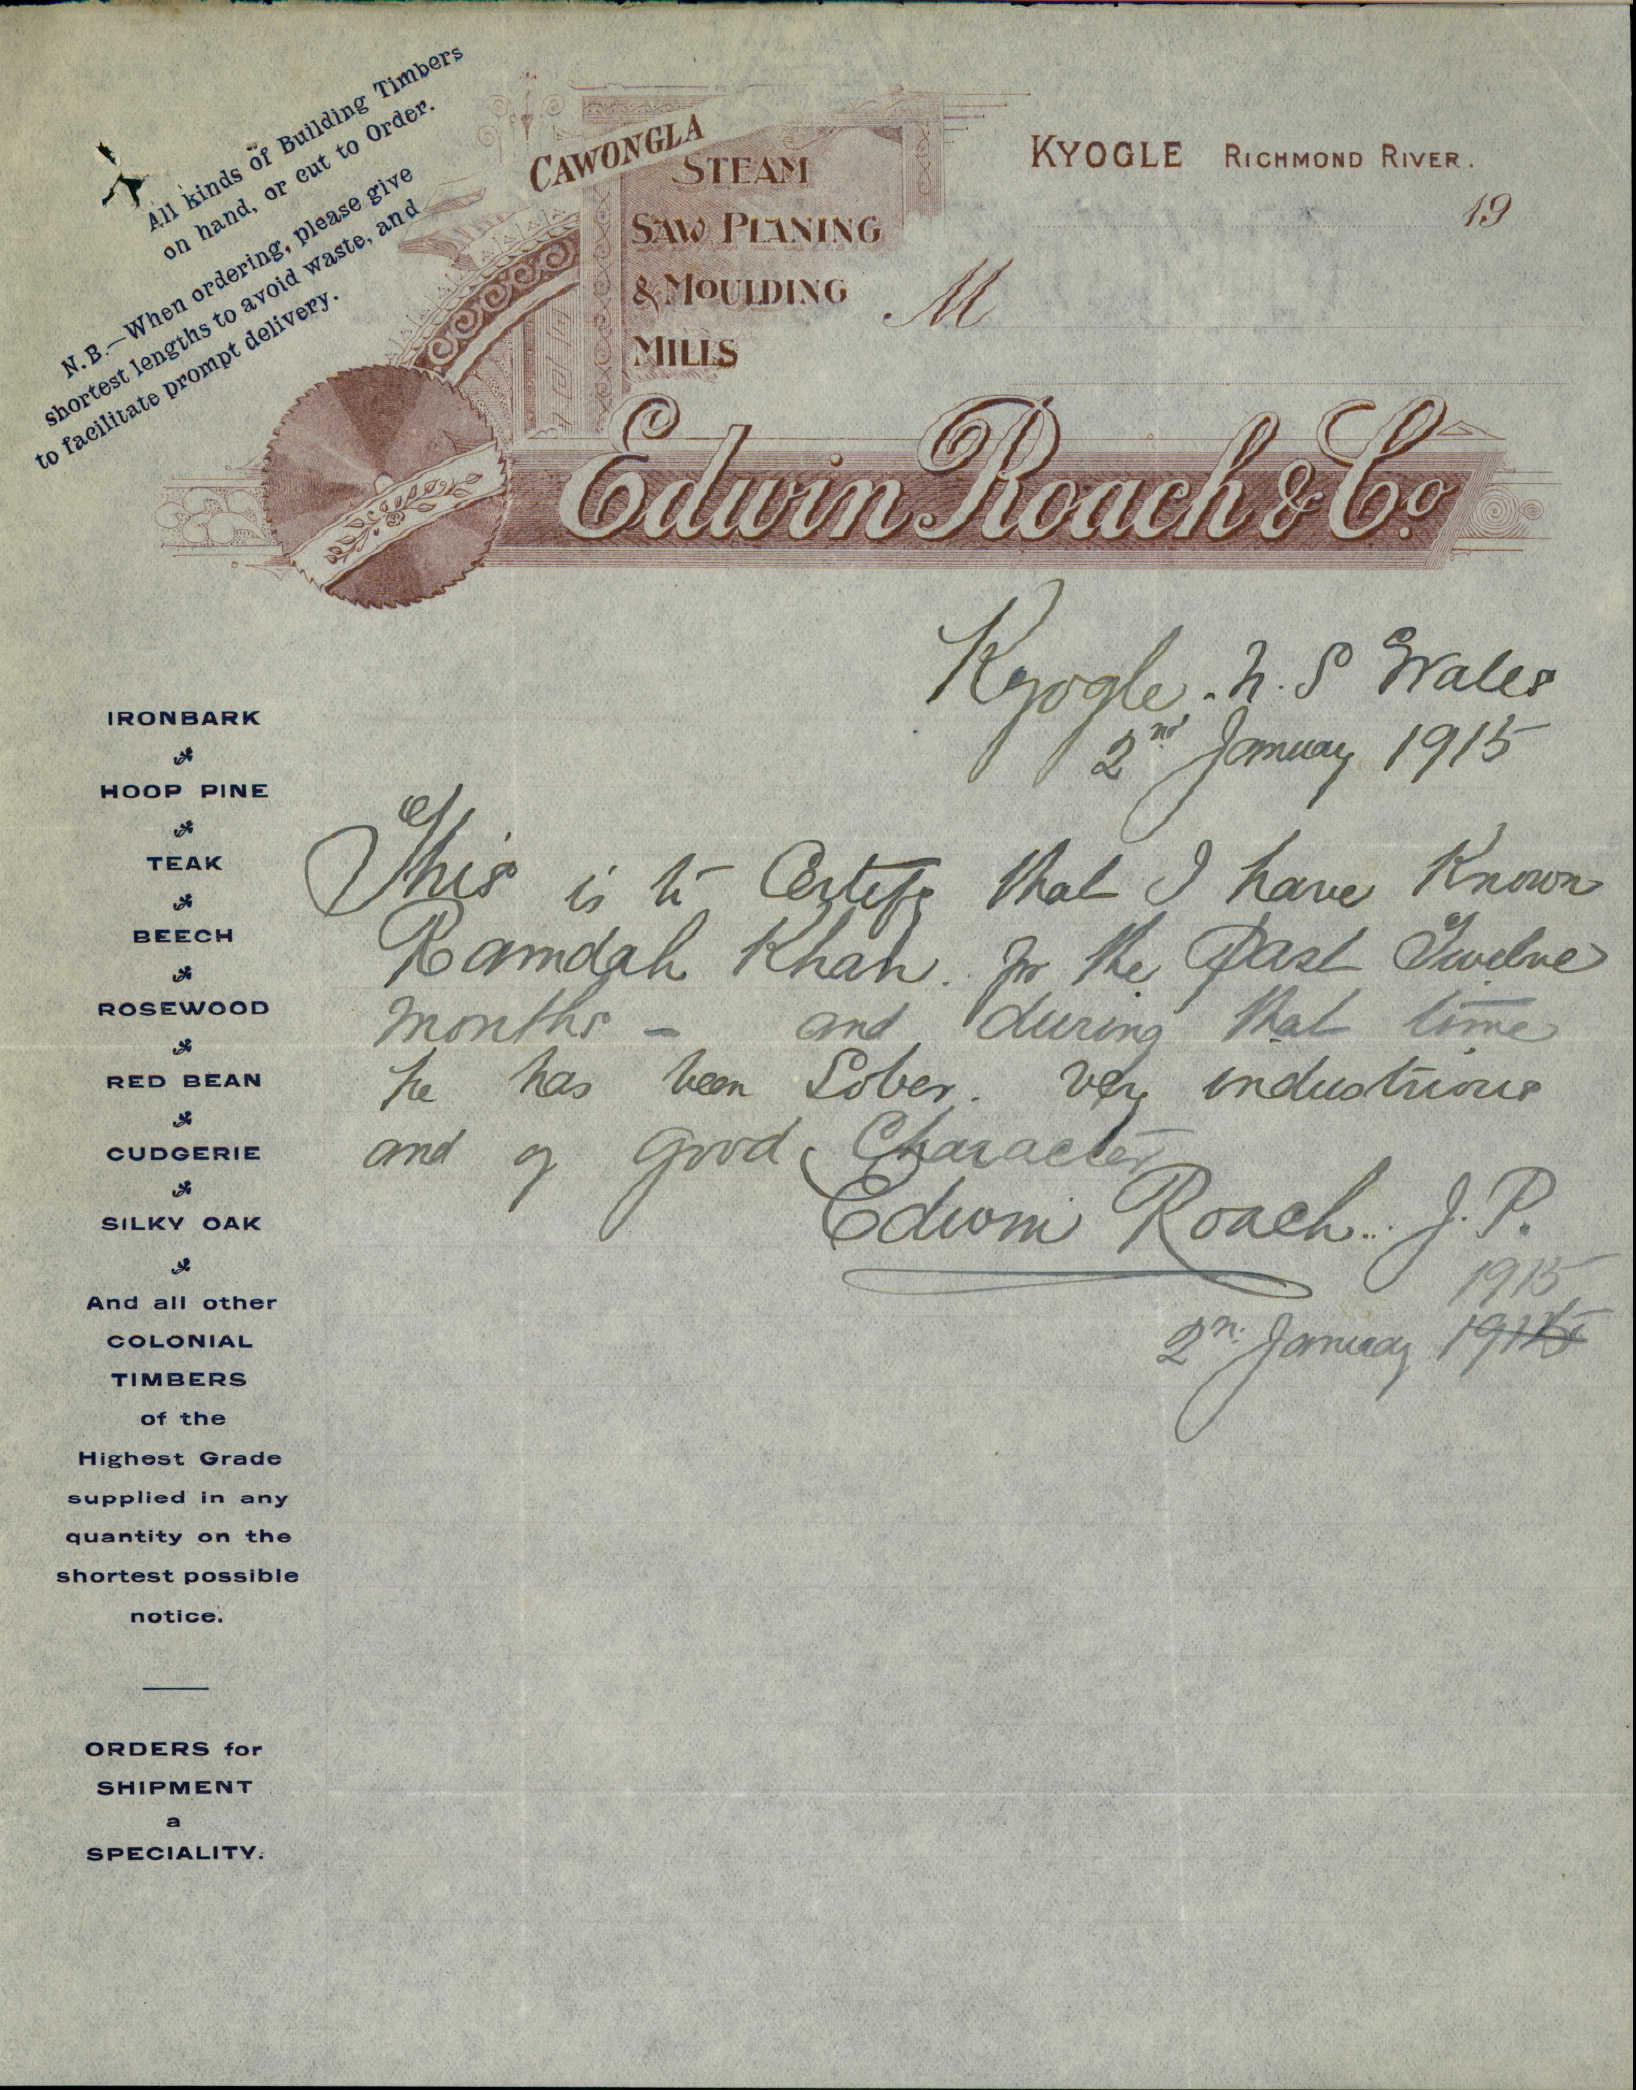 All kinds of Building Timbers
on hand, or cut to Order.
N.B.—When ordering, please give
shortest lengths to avoid waste, and
to facilitate prompt delivery.
CAWONGLA
STEAM
SAW PLANING
& MOULDING
MILLS
KYOGLE RICHMOND RIVER.
19
M
Edwin Roach & Co.
Kyogle. N. S Wales
2nd January 1915
This is to Certify that I have Known
Ramdah Khan. for the Past Twelve
months - and during that time
he has been Sober. very industrious
and of good Character
Edwin Roach.. J. P.
1915
2n. January
IRONBARK
HOOP PINE
TEAK
BEECH
ROSEWOOD
RED BEAN
CUDGERIE
SILKY OAK
And all other
COLONIAL
TIMBERS
of the
Highest Grade
supplied in any
quantity on the
shortest possible
notice.
ORDERS for
SHIPMENT
a
SPECIALITY.